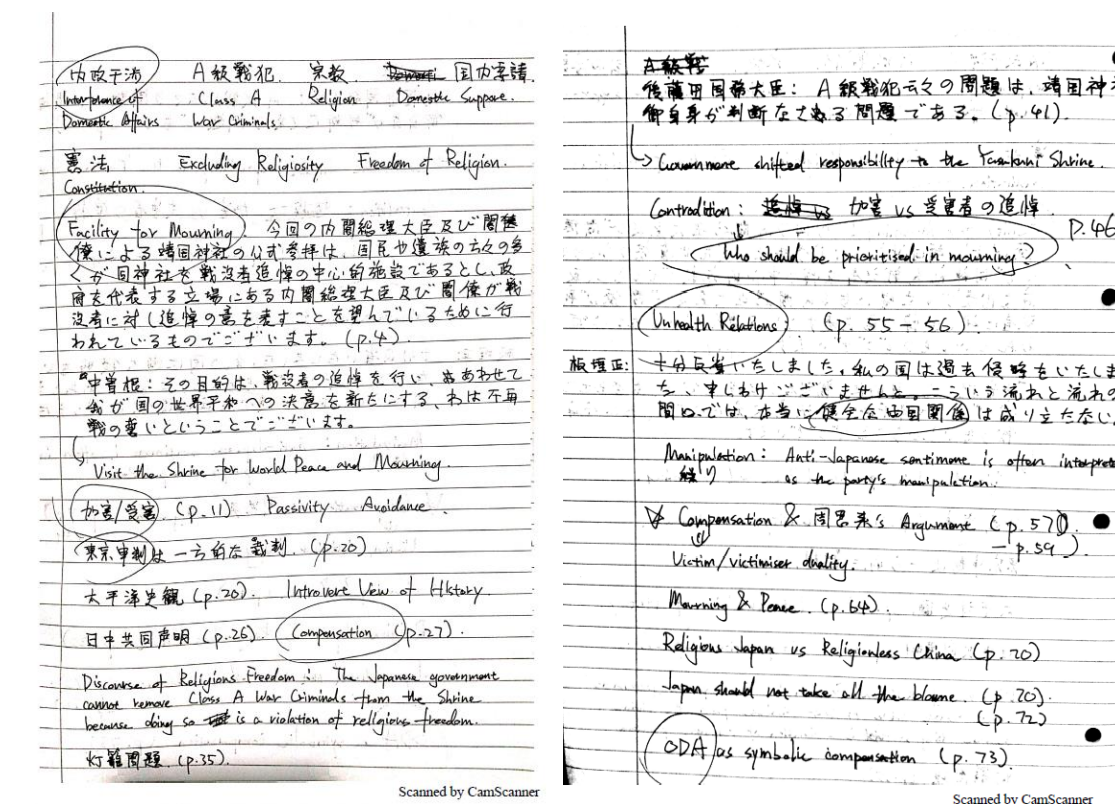 内政干渉 A級戦犯 宗教 国内要請
Interference of Class A Religion Domestic Support.
Domestic Affairs War Criminals.
憲法 Excluding Religiosity Freedom of Religion.
Constitution.
Facility for Mourning 今回の内閣総理大臣及び閣
僚による靖国神社の公式参拝は、国民や遺族の方々の多
くが同神社を戦没者追悼の中心的施設であるとし、政
府を代表する立場にある内閣総理大臣及び閣僚が戦
没者に対し追悼の意を表すことを望んでいるために行
われているものでございます。(p.4).
中曽根:その目的は、戦没者の追悼を行い、あわせて
我が国の世界平和への決意を新たにする、 不再
戦の誓いということでございます。
Visit the Shrine for World Peace and Mourning.
加害/受害 (p.11) Passivity Avoidance.
東京審判は一方的な裁判 (p.20)
太平洋史観 (p.20). Introvert View of History.
日中共同声明 (p.26). Compensation (p.27).
Discourse of Religions Freedom: The Japanese government
cannot remove Class A War Criminals from the Shrine
because doing so is a violation of religious freedom.
灯籠問題 (p.35).
Scanned by CamScanner
A級戦
後藤田国務大臣: A級戦犯云々の問題は、靖国神
御自身が判断なさる問題である。(p.41).
Government shifted responsibility to the Yasukuni Shrine.
Contradition: 追悼 vs 加害 vs 受害者の追悼
P.46
Who should be prioritised in mourning?
Unhealth Relations (p.55-56).
板垣正: 十分反省いたしました。私の国は過去侵略をいたしま
た、申しわけございませんと。ーういう流れと流れの
間 では、本当に健全な 国関係は成り立たない
Manipulation: Anti-Japanese sentiment is often interpret
操り as the party's manipulation.
Compensation & 周恩来's Argument (p.57
- p.59).
Victim/victimiser duality.
Mourning & Peace. (p.64).
Religious Japan vs Religionless China (p.70)
Japan should not take all the blame. (p.70).
(p.72)
ODA as symbolic compensation (p.73).
Scanned by CamScanner